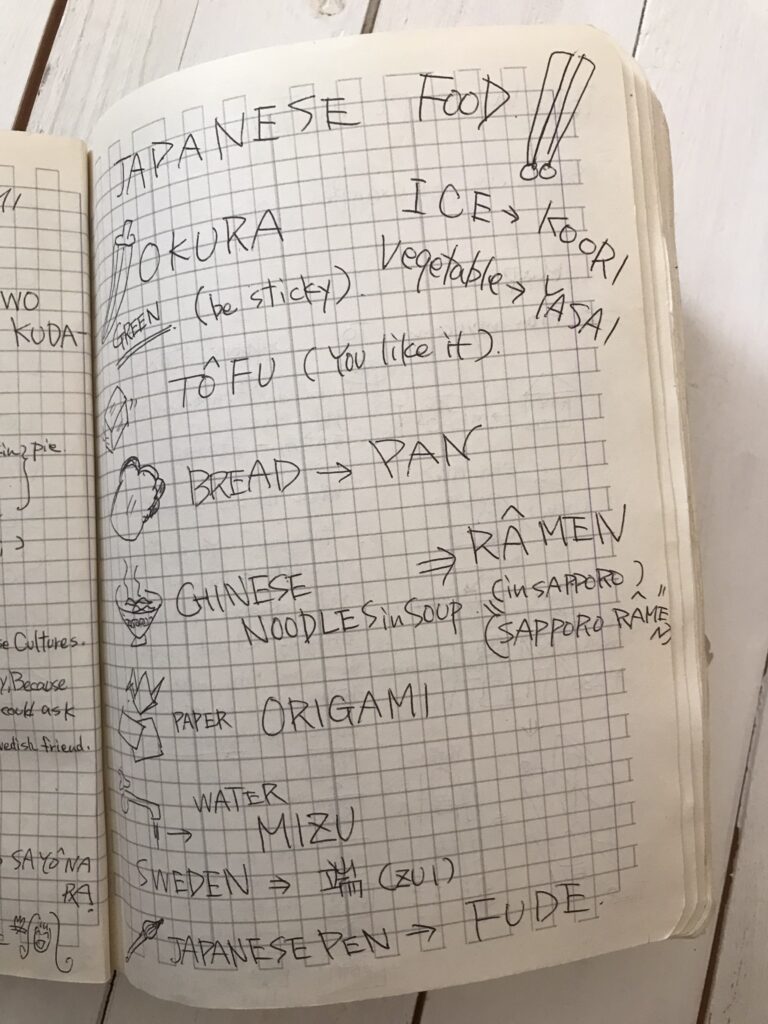 WO
KUDA-
pie
Cultures.
Because
could ask
friend.
SAYÔNA
RA!
JAPANESE FOOD
ICE → KOORI
OKURA
GREEN (be sticky).
Vegetable → YASAI
TÔFU (You like it).
BREAD → PAN
CHINESE
NOODLES in SOUP
⇒ RÂMEN
(in SAPPORO)
(SAPPORO RÂME
N)
PAPER ORIGAMI
WATER
→ MIZU
SWEDEN ⇒ 端 (ZUI)
JAPANESE PEN → FUDE.